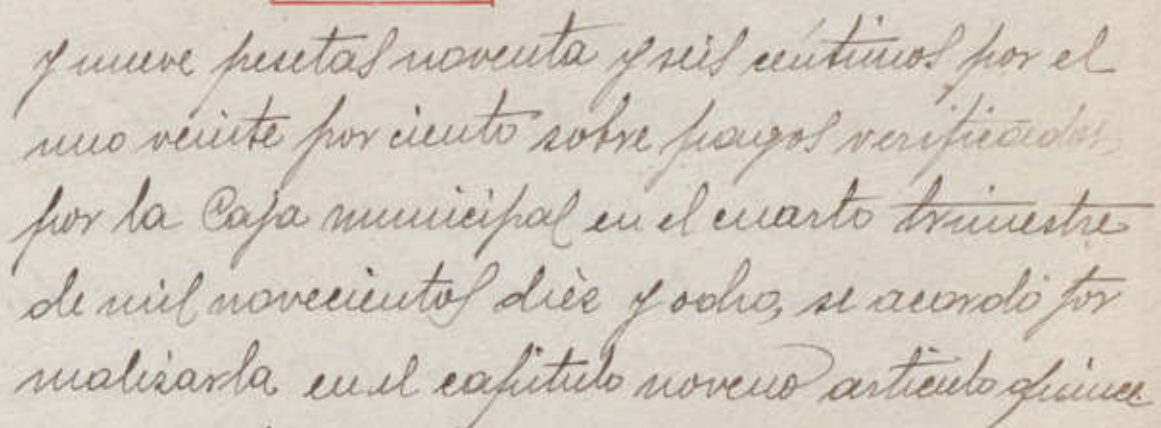 y nueve pesetas noventa y seis céntimos por el
uno veinte por ciento sobre pagos verificados
por la Caja municipal en el cuarto trimestre
de mil novecientos diéz y ocho, se acordó for
malizarla en el capítulo noveno artículo quince